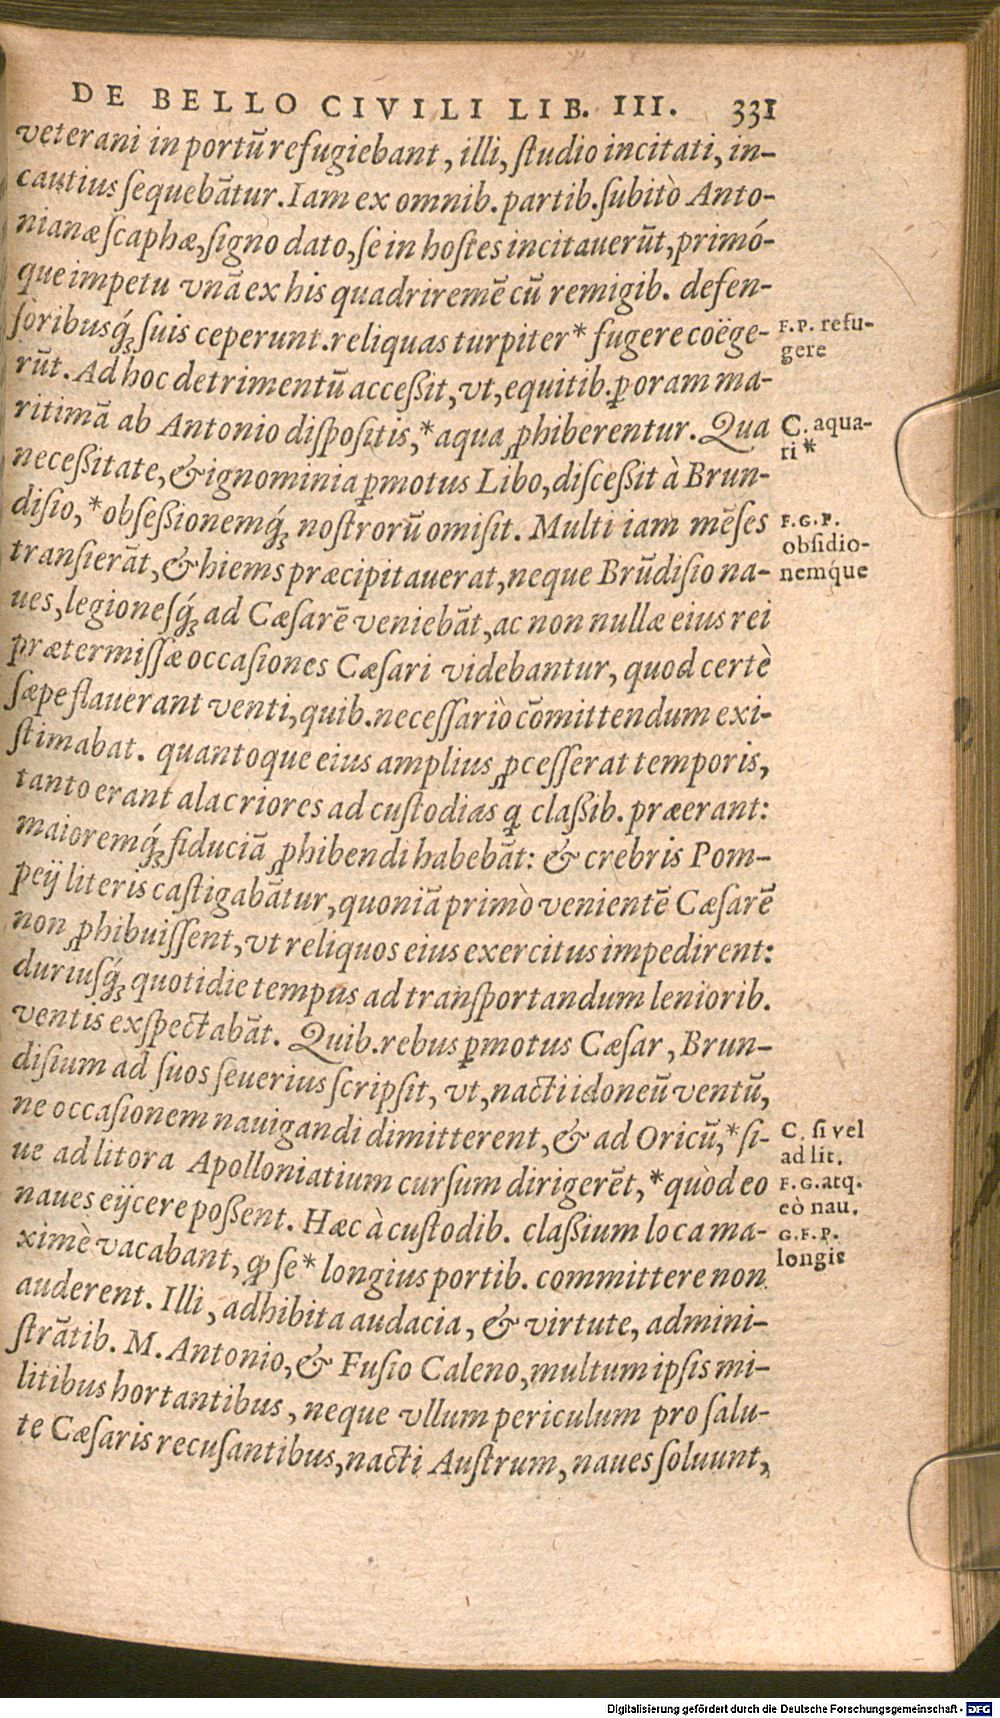 DE BELLO CIVILI LIB. III. 331
veterani in portū refugiebant, illi, ſtudio incitati, in-
cautius ſequebātur. Iam ex omnib. partib. ſubitò Anto-
nianæ ſcaphæ, ſigno dato, ſe in hoſtes incitauerūt, primó-
que impetu vnā ex his quadriremē cū remigib. defen-
ſoribusq́; ſuis ceperunt. reliquas turpiter* fugere coëge-
rūt. Ad hoc detrimentū acceßit, vt, equitib. ꝑ oram ma-
ritimā ab Antonio diſpoſitis,* aqua ꝓhiberentur. Qua
neceßitate, & ignominia ꝑmotus Libo, diſceßit à Brun-
diſio,* obſeßionemq́; noſtrorū omiſit. Multi iam mēſes
tranſierāt, & hiems præcipitauerat, neque Brūdiſio na-
ues, legioneſq́; ad Cæſarē veniebāt, ac non nullæ eius rei
prætermiſſæ occaſiones Cæſari videbantur, quod certè
ſæpe flauerant venti, quib. neceſſariò cōmittendum exi-
ſtimabat. quantoque eius amplius ꝓceſſerat temporis,
tanto erant alacriores ad cuſtodias q̃ claßib. præerant:
maioremq́; fiduciā ꝓhibendi habebāt: & crebris Pom-
peij literis caſtigabātur, quoniā primò venientē Cæſarē
non ꝓhibuiſſent, vt reliquos eius exercitus impedirent:
duriusq́; quotidie tempus ad tranſportandum leniorib.
ventis exſpectabāt. Quib. rebus ꝑmotus Cæſar, Brun-
diſium ad ſuos ſeuerius ſcripſit, vt, nacti idoneū ventū,
ne occaſionem nauigandi dimitterent, & ad Oricū,* ſi-
ue ad litora Apolloniatium curſum dirigerēt,* quòd eo
naues eijcere poßent. Hæc à cuſtodib. claßium loca ma-
ximè vacabant, ꝙ ſe* longius portib. committere non
auderent. Illi, adhibita audacia, & virtute, admini-
ſtrātib. M. Antonio, & Fuſio Caleno, multum ipſis mi-
litibus hortantibus, neque vllum periculum pro ſalu-
te Cæſaris recuſantibus, nacti Auſtrum, naues ſoluunt,
F.P. refu-
gere
C. aqua-
ri*
F.G.P.
obſidio-
nemq́ue
C. ſi vel
ad lit.
F.G. atq.
eò nau.
G.F.P.
longis
Digitalisierung gefördert durch die Deutsche Forschungsgemeinschaft - DFG